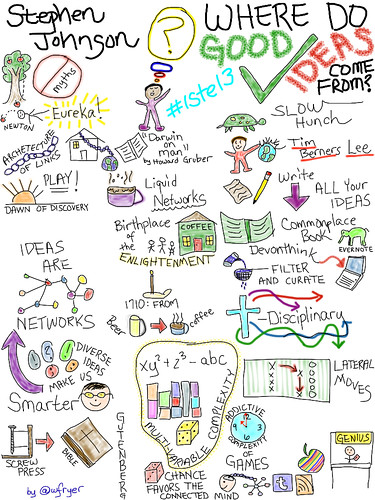 Stephen Johnson
?
WHERE DO
GOOD
IDEAS
COME FROM?
myths
#iste13
Eureka!
NEWTON
SLOW
Hunch
ARCHITECTURE
OF LINKS
"Darwin
on
man"
by Howard Gruber
Tim
Berners Lee
PLAY!
DAWN OF DISCOVERY
Liquid
Networks
Write
ALL YOUR
IDEAS
Birthplace
of the
ENLIGHTENMENT
COFFEE
Commonplace
Book
EVERNOTE
Devonthink
FILTER
AND CURATE
IDEAS
ARE
NETWORKS
1710: FROM
Beer
Coffee
-Disciplinary
DIVERSE
IDEAS
MAKE US
Smarter
xy² + z³ - abc
MULTIVARIABLE COMPLEXITY
LATERAL
MOVES
ADDICTIVE
COMPLEXITY
of
GAMES
12
3
6
9
SCREW
PRESS
BIBLE
GUTENBERG
GENIUS
CHANCE
FAVORS THE
CONNECTED MIND
t
by @wfryer